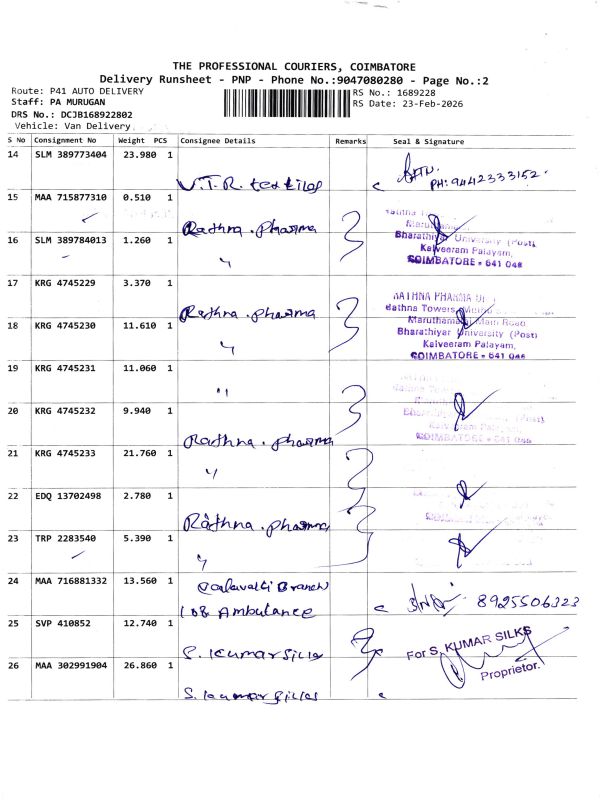 THE PROFESSIONAL COURIERS, COIMBATORE
Delivery Runsheet - PNP - Phone No.:9047080280 - Page No.:2
Route: P41 AUTO DELIVERY
RS No.: 1689228
Staff: PA MURUGAN
RS Date: 23-Feb-2026
DRS No.: DCJB168922802
Vehicle: Van Delivery
S No Consignment No Weight PCS Consignee Details Remarks Seal & Signature
14 SLM 389773404 23.980 1
V.T.R. textiles
PH: 9442333152
15 MAA 715877310 0.510 1
Rathna . pharma
Bharathiyar University (Post)
Kalveeram Palayam,
COIMBATORE - 641 046
16 SLM 389784013 1.260 1
"
17 KRG 4745229 3.370 1
Rathna . pharma
RATHNA PHARMA
Rathna Towers
Maruthamalai Main Road
Bharathiyar University (Post)
Kalveeram Palayam,
COIMBATORE - 641 046
18 KRG 4745230 11.610 1
"
19 KRG 4745231 11.060 1
"
20 KRG 4745232 9.940 1
Rathna . pharma
COIMBATORE - 641 046
21 KRG 4745233 21.760 1
"
22 EDQ 13702498 2.780 1
Rathna . pharma
23 TRP 2283540 5.390 1
"
24 MAA 716881332 13.560 1
Branch
108 Ambulance
8925506323
25 SVP 410852 12.740 1
S. kumar silks
For S. KUMAR SILKS
Proprietor.
26 MAA 302991904 26.860 1
S. kumar silks